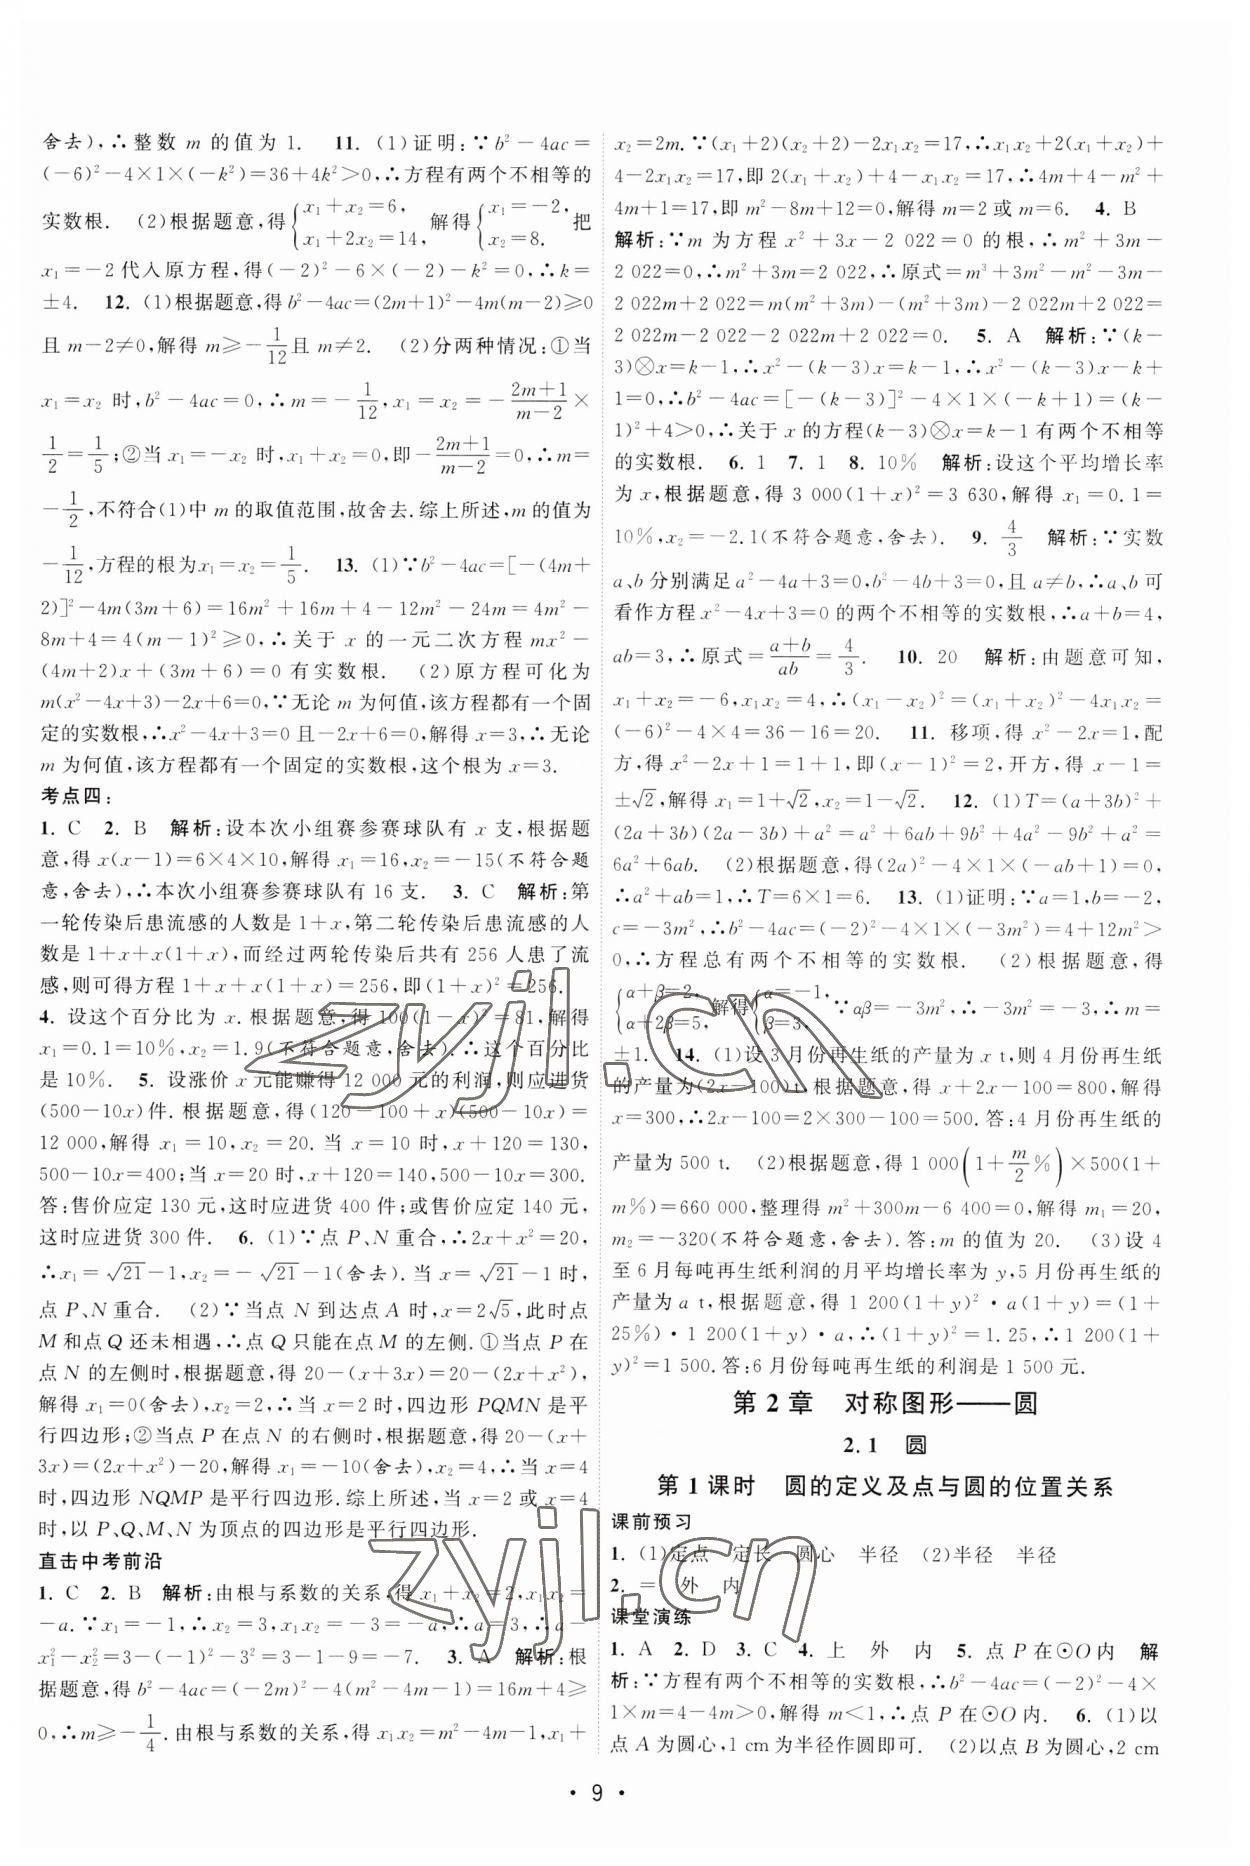 舍去),∴整数 m 的值为 1. 11. (1)证明:∵b²－4ac＝
(－6)²－4×1×(－k²)＝36＋4k²＞0,∴方程有两个不相等的
实数根. (2)根据题意,得{x₁＋x₂＝6, x₁＋2x₂＝14, 解得{x₁＝－2, x₂＝8. 把
x₁＝－2代入原方程,得(－2)²－6×(－2)－k²＝0,∴k＝
±4. 12. (1)根据题意,得b²－4ac＝(2m＋1)²－4m(m－2)≥0
且 m－2≠0,解得 m≥－1/12且 m≠2. (2)分两种情况:①当
x₁＝x₂ 时,b²－4ac＝0,∴m＝－1/12,x₁＝x₂＝－(2m＋1)/(m－2)×
1/2＝1/5;②当 x₁＝－x₂ 时,则 x₁＋x₂＝0,即－(2m＋1)/(m－2)＝0,∴m＝
－1/2,不符合(1)中 m 的取值范围,故舍去.综上所述,m 的值为
－1/12,方程的根为x₁＝x₂＝1/5. 13. (1)∵b²－4ac＝[－(4m＋
2)]²－4m(3m＋6)＝16m²＋16m＋4－12m²－24m＝4m²－
8m＋4＝4(m－1)²≥0,∴关于 x 的一元二次方程 mx²－
(4m＋2)x＋(3m＋6)＝0 有实数根. (2)原方程可化为
m(x²－4x＋3)－2x＋6＝0,∵无论 m 为何值,该方程都有一个固
定的实数根,∴x²－4x＋3＝0 且－2x＋6＝0,解得 x＝3,∴无论
m 为何值,该方程都有一个固定的实数根,这个根为 x＝3.
考点四:
1. C 2. B 解析:设本次小组赛参赛球队有 x 支,根据题
意,得 x(x－1)＝6×4×10,解得 x₁＝16,x₂＝－15(不符合题
意,舍去),∴本次小组赛参赛球队有 16 支. 3. C 解析:第
一轮传染后患流感的人数是 1＋x,第二轮传染后患流感的人
数是 1＋x＋x(1＋x),而经过两轮传染后共有 256 人患了流
感,则可得方程 1＋x＋x(1＋x)＝256,即(1＋x)²＝256.
4. 设这个百分比为 x.根据题意,得 100(1－x)²＝81,解得
x₁＝0.1＝10%,x₂＝1.9(不符合题意,舍去).∴这个百分比
是 10%. 5. 设涨价 x 元能赚得 12 000 元的利润,则应进货
(500－10x)件.根据题意,得(120－100＋x)(500－10x)＝
12 000,解得 x₁＝10,x₂＝20. 当 x＝10 时,x＋120＝130,
500－10x＝400;当 x＝20 时,x＋120＝140,500－10x＝300.
答:售价应定 130 元,这时应进货 400 件;或售价应定 140 元,
这时应进货 300 件. 6. (1)∵点 P、N 重合,∴2x＋x²＝20,
∴x₁＝√21－1,x₂＝－√21－1(舍去).当 x＝√21－1 时,
点 P、N 重合. (2)∵当点 N 到达点 A 时,x＝2√5,此时点
M 和点 Q 还未相遇,∴点 Q 只能在点 M 的左侧.①当点 P 在
点 N 的左侧时,根据题意,得 20－(x＋3x)＝20－(2x＋x²),
解得 x₁＝0(舍去),x₂＝2,∴当 x＝2 时,四边形 PQMN 是平
行四边形;②当点 P 在点 N 的右侧时,根据题意,得 20－(x＋
3x)＝(2x＋x²)－20,解得 x₁＝－10(舍去),x₂＝4,∴当 x＝4
时,四边形 NQMP 是平行四边形.综上所述,当 x＝2 或 x＝4
时,以 P、Q、M、N 为顶点的四边形是平行四边形.
直击中考前沿
1. C 2. B 解析:由根与系数的关系,得 x₁＋x₂＝2,x₁x₂＝
－a.∵x₁＝－1,∴x₂＝3,x₁x₂＝－3＝－a,∴a＝3,∴a－
x₁²－x₂²＝3－(－1)²－3²＝3－1－9＝－7. 3. A 解析:根
据题意,得 b²－4ac＝(－2m)²－4(m²－4m－1)＝16m＋4≥
0,∴m≥－1/4.由根与系数的关系,得 x₁x₂＝m²－4m－1,x₁＋
x₂＝2m.∵(x₁＋2)(x₂＋2)－2x₁x₂＝17,∴x₁x₂＋2(x₁＋x₂)＋
4－2x₁x₂＝17,即 2(x₁＋x₂)＋4－x₁x₂＝17,∴4m＋4－m²＋
4m＋1＝17,即 m²－8m＋12＝0,解得 m＝2 或 m＝6. 4. B
解析:∵m 为方程 x²＋3x－2 022＝0 的根,∴m²＋3m－
2 022＝0,∴m²＋3m＝2 022,∴原式＝m³＋3m²－m²－3m－
2 022m＋2 022＝m(m²＋3m)－(m²＋3m)－2 022m＋2 022＝
2 022m－2 022－2 022m＋2 022＝0. 5. A 解析:∵(k－
3)⊗x＝k－1,∴x²－(k－3)x＝k－1,∴x²－(k－3)x－k＋
1＝0,∴b²－4ac＝[－(k－3)]²－4×1×(－k＋1)＝(k－
1)²＋4＞0,∴关于 x 的方程(k－3)⊗x＝k－1 有两个不相等
的实数根. 6. 1 7. 1 8. 10% 解析:设这个平均增长率
为 x,根据题意,得 3 000(1＋x)²＝3 630,解得 x₁＝0.1＝
10%,x₂＝－2.1(不符合题意,舍去). 9. 4/3 解析:∵实数
a、b分别满足 a²－4a＋3＝0,b²－4b＋3＝0,且 a≠b,∴a、b 可
看作方程 x²－4x＋3＝0 的两个不相等的实数根,∴a＋b＝4,
ab＝3,∴原式＝(a＋b)/ab＝4/3. 10. 20 解析:由题意可知,
x₁＋x₂＝－6,x₁x₂＝4,∴(x₁－x₂)²＝(x₁＋x₂)²－4x₁x₂＝
(－6)²－4×4＝36－16＝20. 11. 移项,得 x²－2x＝1,配
方,得 x²－2x＋1＝1＋1,即(x－1)²＝2,开方,得 x－1＝
±√2,解得 x₁＝1＋√2,x₂＝1－√2. 12. (1)T＝(a＋3b)²＋
(2a＋3b)(2a－3b)＋a²＝a²＋6ab＋9b²＋4a²－9b²＋a²＝
6a²＋6ab. (2)根据题意,得(2a)²－4×1×(－ab＋1)＝0,
∴a²＋ab＝1,∴T＝6×1＝6. 13. (1)证明:∵a＝1,b＝－2,
c＝－3m²,∴b²－4ac＝(－2)²－4×1×(－3m²)＝4＋12m²＞
0,∴方程总有两个不相等的实数根. (2)根据题意,得
{α＋β＝2, α＋2β＝5, 解得{α＝－1, β＝3, ∵αβ＝－3m²,∴－3m²＝－3,∴m＝
±1. 14. (1)设 3 月份再生纸的产量为 x t,则 4 月份再生纸
的产量为(2x－100)t,根据题意,得 x＋2x－100＝800,解得
x＝300,∴2x－100＝2×300－100＝500.答:4 月份再生纸的
产量为 500 t. (2)根据题意,得 1 000(1＋m/2%)×500(1＋
m%)＝660 000,整理得 m²＋300m－6 400＝0,解得 m₁＝20,
m₂＝－320(不符合题意,舍去).答:m 的值为 20. (3)设 4
至 6 月每吨再生纸利润的月平均增长率为 y,5 月份再生纸的
产量为 a t,根据题意,得 1 200(1＋y)²·a(1＋y)＝(1＋
25%)·1 200(1＋y)·a,∴(1＋y)²＝1.25,∴1 200(1＋
y)²＝1 500.答:6 月份每吨再生纸的利润是 1 500 元.
第 2 章 对称图形——圆
2.1 圆
第 1 课时 圆的定义及点与圆的位置关系
课前预习
1. (1)定点 定长 圆心 半径 (2)半径 半径
2. ＝ 外 内
课堂演练
1. A 2. D 3. C 4. 上 外 内 5. 点 P 在⊙O 内 解
析:∵方程有两个不相等的实数根,∴b²－4ac＝(－2)²－4×
1×m＝4－4m＞0,解得 m＜1,∴点 P 在⊙O 内. 6. (1)以
点 A 为圆心,1 cm 为半径作圆即可. (2)以点 B 为圆心,2 cm
· 9 ·
zyjl.cn
zyjl.cn